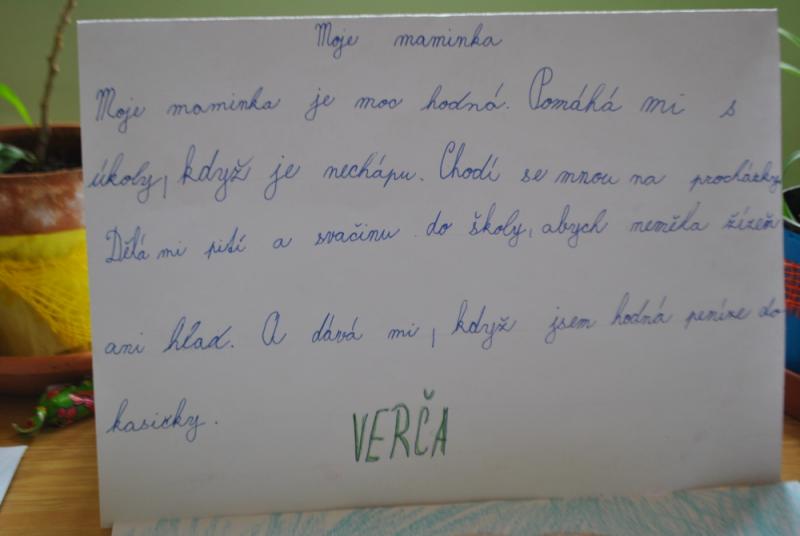 Moje maminka
Moje maminka je moc hodná. Pomáhá mi s
úkoly, když je nechápu. Chodí se mnou na procházky
Dělá mi pití a svačinu do školy, abych neměla žízeň
ani hlad. A dává mi, když jsem hodná peníze do
kasičky.
VERČA